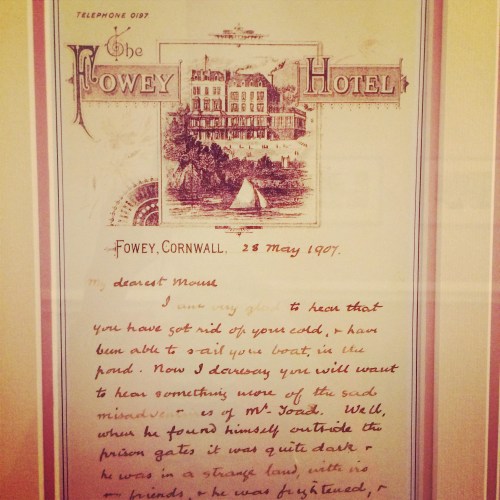 TELEPHONE 0197.
The
FOWEY HOTEL
FOWEY, CORNWALL. 28 May 1907.
My dearest Mouse
I am very glad to hear that
you have got rid of your cold, & have
been able to sail your boat, in the
pond. Now I daresay you will want
to hear something more of the sad
misadventures of Mr. Toad. Well,
when he found himself outside the
prison gates it was quite dark &
he was in a strange land, with no
friends, & he was frightened, &